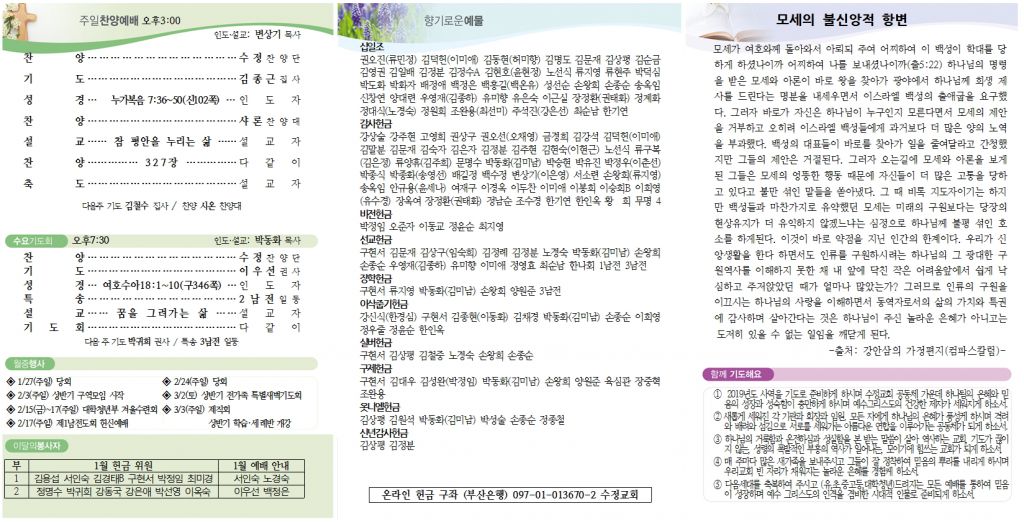 주일찬양예배 오후3:00
인도·설교: 변상기 목사
찬 양 수정찬양단
기 도 김종근집사
성 경 누가복음 7:36~50(신102쪽) 인 도 자
찬 양 샤론찬양대
설 교 참 평안을 누리는 삶 설 교 자
찬 양 327장 다 같 이
축 도 설 교 자
다음주 기도 김철수 집사 / 찬양 시온 찬양대
수요기도회 오후7:30
인도·설교: 박동화 목사
찬 양 수정찬양단
기 도 이우선권사
성 경 여호수아18:1~10(구346쪽) 인 도 자
특 송 2남전일동
설 교 꿈을 그려가는 삶 설 교 자
기 도 회 다 같 이
다음 주 기도 박귀희 권사 / 특송 3남전 일동
월중행사
◈ 1/27(주일) 당회
◈ 2/24(주일) 당회
◈ 2/3(주일) 상반기 구역모임 시작
◈ 3/2(토) 상반기 전가족 특별새벽기도회
◈ 2/15(금)~17(주일) 대학청년부 겨울수련회
◈ 3/3(주일) 제직회
◈ 2/17(주일) 제1남전도회 헌신예배
상반기 학습·세례반 개강
이달의봉사자
부 1월 헌금 위원 1월 예배 안내
1 김용섭 서인숙 김경태B 구현서 박정임 최미경 서인숙 노경숙
2 정명수 박귀희 강동국 강은애 박선영 이옥숙 이우선 백정은
향기로운예물
십일조
권오진(류민정) 김덕헌(이미애) 김동현(허미향) 김명도 김문재 김상평 김순금
김영권 김일배 김정분 김정수A 김현호(윤현정) 노선식 류지영 류현주 박덕심
박도화 박화자 배정애 백정은 백홍길(백운유) 성선순 손왕희 손종순 송옥임
신창연 양대련 우영재(김종하) 유미향 유은숙 이근실 장정환(권태화) 정계화
정대식(노경숙) 정원희 조완용(최선미) 주석진(강은선) 최순남 한기연
감사헌금
강상술 강주현 고영희 권상구 권오선(오재영) 금경희 김강석 김덕헌(이미애)
김말분 김문재 김숙자 김은자 김정분 김주현 김현숙(이현근) 노선식 류구복
(김은정) 류양휴(김주희) 문명수 박동화(김미남) 박승현 박유진 박정우(이춘선)
박종식 박종화(송영선) 배길정 백수정 변상기(이은영) 서소련 손왕희(류지영)
송옥임 안규용(윤세나) 여재구 이경옥 이두찬 이미애 이봉희 이승희B 이희영
(유수경) 장옥여 장정환(권태화) 정남순 조수경 한기연 한인옥 황 희 무명 4
비전헌금
박정임 오준자 이동교 정윤순 최지영
선교헌금
구현서 김문재 김상구(임숙희) 김정례 김정분 노경숙 박동화(김미남) 손왕희
손종순 우영재(김종하) 유미향 이미애 정영호 최순남 한나회 1남전 3남전
장학헌금
구현서 류지영 박동화(김미남) 손왕희 양원준 3남전
이삭줍기헌금
강신식(한경심) 구현서 김종현(이동화) 김채경 박동화(김미남) 손종순 이희영
정우줄 정윤순 한인옥
실버헌금
구현서 김상평 김철중 노경숙 손왕희 손종순
구제헌금
구현서 김대우 김성완(박정임) 박동화(김미남) 손왕희 양원준 육심관 장중혁
조완용
옷나염헌금
김상평 김원석 박동화(김미남) 박성술 손종순 정종철
신년감사헌금
김상평 김정분
온라인 헌금 구좌 (부산은행) 097-01-013670-2 수정교회
모세의 불신앙적 항변
모세가 여호와께 돌아와서 아뢰되 주여 어찌하여 이 백성이 학대를 당
하게 하셨나이까 어찌하여 나를 보내셨나이까(출5:22) 하나님의 명령
을 받은 모세와 아론이 바로 왕을 찾아가 광야에서 하나님께 희생 제
사를 드린다는 명분을 내세우면서 이스라엘 백성의 출애굽을 요구했
다. 그러자 바로가 자신은 하나님이 누구인지 모른다면서 모세의 제안
을 거부하고 오히려 이스라엘 백성들에게 과거보다 더 많은 양의 노역
을 부과했다. 백성의 대표들이 바로를 찾아가 일을 줄여달라고 간청했
지만 그들의 제안은 거절된다. 그러자 오는길에 모세와 아론을 보게
된 그들은 모세의 엉뚱한 행동 때문에 자신들이 더 많은 고통을 당하
고 있다고 불만 섞인 말들을 쏟아냈다. 그 때 비록 지도자이기는 하지
만 백성들과 마찬가지로 유약했던 모세는 미래의 구원보다는 당장의
현상유지가 더 유익하지 않겠느냐는 심정으로 하나님께 불평 섞인 호
소를 하게된다. 이것이 바로 약점을 지닌 인간의 한계이다. 우리가 신
앙생활을 한다 하면서도 인류를 구원하시려는 하나님의 그 광대한 구
원역사를 이해하지 못한 채 내 앞에 닥친 작은 어려움앞에서 쉽게 낙
심하고 주저앉았던 때가 얼마나 많았는가? 그러므로 인류의 구원을
이끄시는 하나님의 사랑을 이해하면서 동역자로서의 삶의 가치와 특권
에 감사하며 살아간다는 것은 하나님이 주신 놀라운 은혜가 아니고는
도저히 있을 수 없는 일임을 깨닫게 된다.
-출처: 강안삼의 가정편지(컴파스칼럼)-
함께 기도해요
① 2019년도 사역을 기도로 준비하게 하시며 수정교회 공동체 가운데 하나님의 은혜와 믿
음의 성장과 성숙함이 충만하게 하시며 예수그리스도의 건강한 제자가 세워지게 하소서.
② 새롭게 세워진 각 기관과 회장과 임원, 모든 지체에게 하나님의 은혜가 풍성케 하시며 격려
와 배려와 섬김으로 서로를 세워가는 아름다운 연합을 이루어가는 공동체가 되게 하소서.
③ 하나님의 거룩함과 온전하심과 성실함을 본 받는 말씀이 살아 역사하는 교회, 기도가 끊이
지 않는, 성령의 폭발적인 부흥의 역사가 일어나는, 모이기에 힘쓰는 교회가 되게 하소서.
④ 매 주마다 많은 새가족을 보내주시고 그들이 잘 정착하여 믿음의 뿌리를 내리게 하시며
우리교회 빈 자리가 채워지는 놀라운 은혜를 경험케 하소서.
⑤ 다음세대를 축복하여 주시고 (유,초,중고등,대학청년)드려지는 모든 예배를 통하여 믿음
이 성장하며 예수 그리스도의 인격을 겸비한 시대적 인물로 준비되게 하소서.